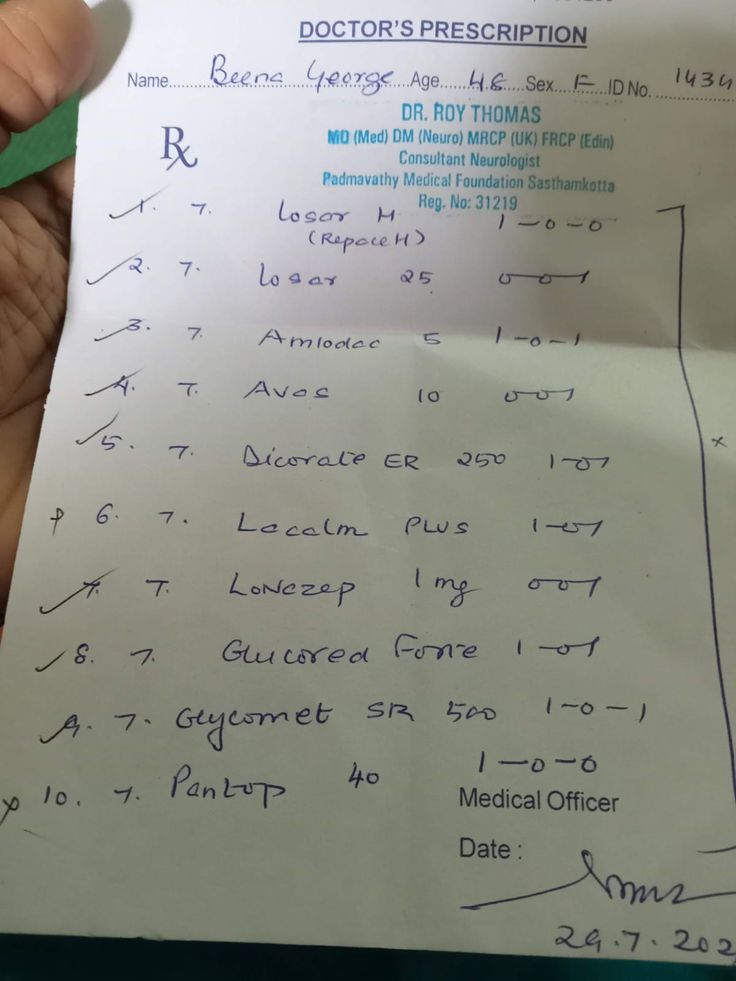 DOCTOR'S PRESCRIPTION
Name Beena George Age 48 Sex F ID No. 1434
DR. ROY THOMAS
MD (Med) DM (Neuro) MRCP (UK) FRCP (Edin)
Consultant Neurologist
Padmavathy Medical Foundation Sasthamkotta
Reg. No: 31219
Rx
1. T. Losar H 1-0-0
(Repace H)
2. T. Losar 25 0-0-1
3. T. Amlodac 5 1-0-1
4. T. Avas 10 0-0-1
5. T. Dicorate ER 250 1-0-1
6. T. Lacalm PLUS 1-0-1
7. T. Lonazep 1mg 0-0-1
8. T. Glucored Forte 1-0-1
9. T. Glycomet SR 500 1-0-1
10. T. Pantop 40 1-0-0
Medical Officer
Date :
29.7.202